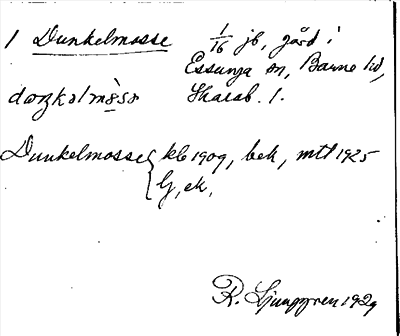 1 Dunkelmosse 1/16 jb, gård i
Essunga sn, Barne hd,
Skarab. l.
Dunkelmosse { kb 1909, bek, mtl 1925
{ G, ek,
R. Ljunggren 1929